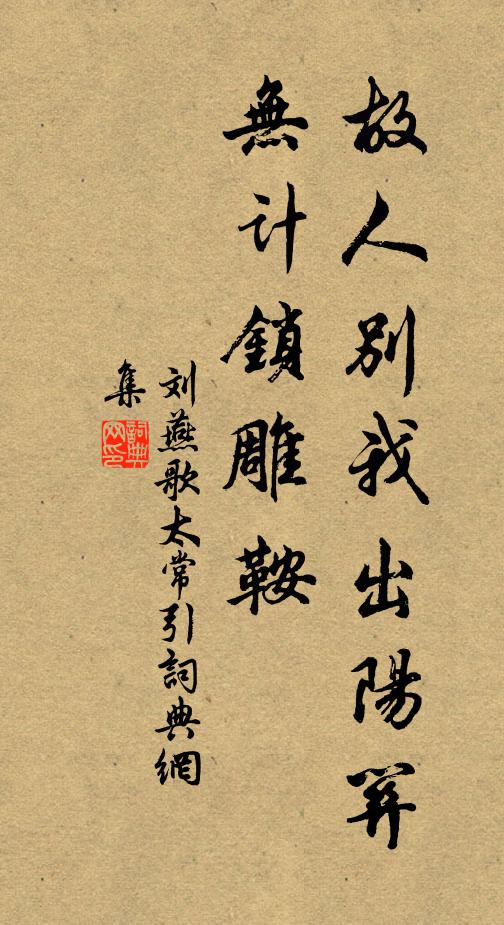 故人別我出陽關
無计鎖雕鞍
刘燕歌太常引詞典網
集
詞典
网印